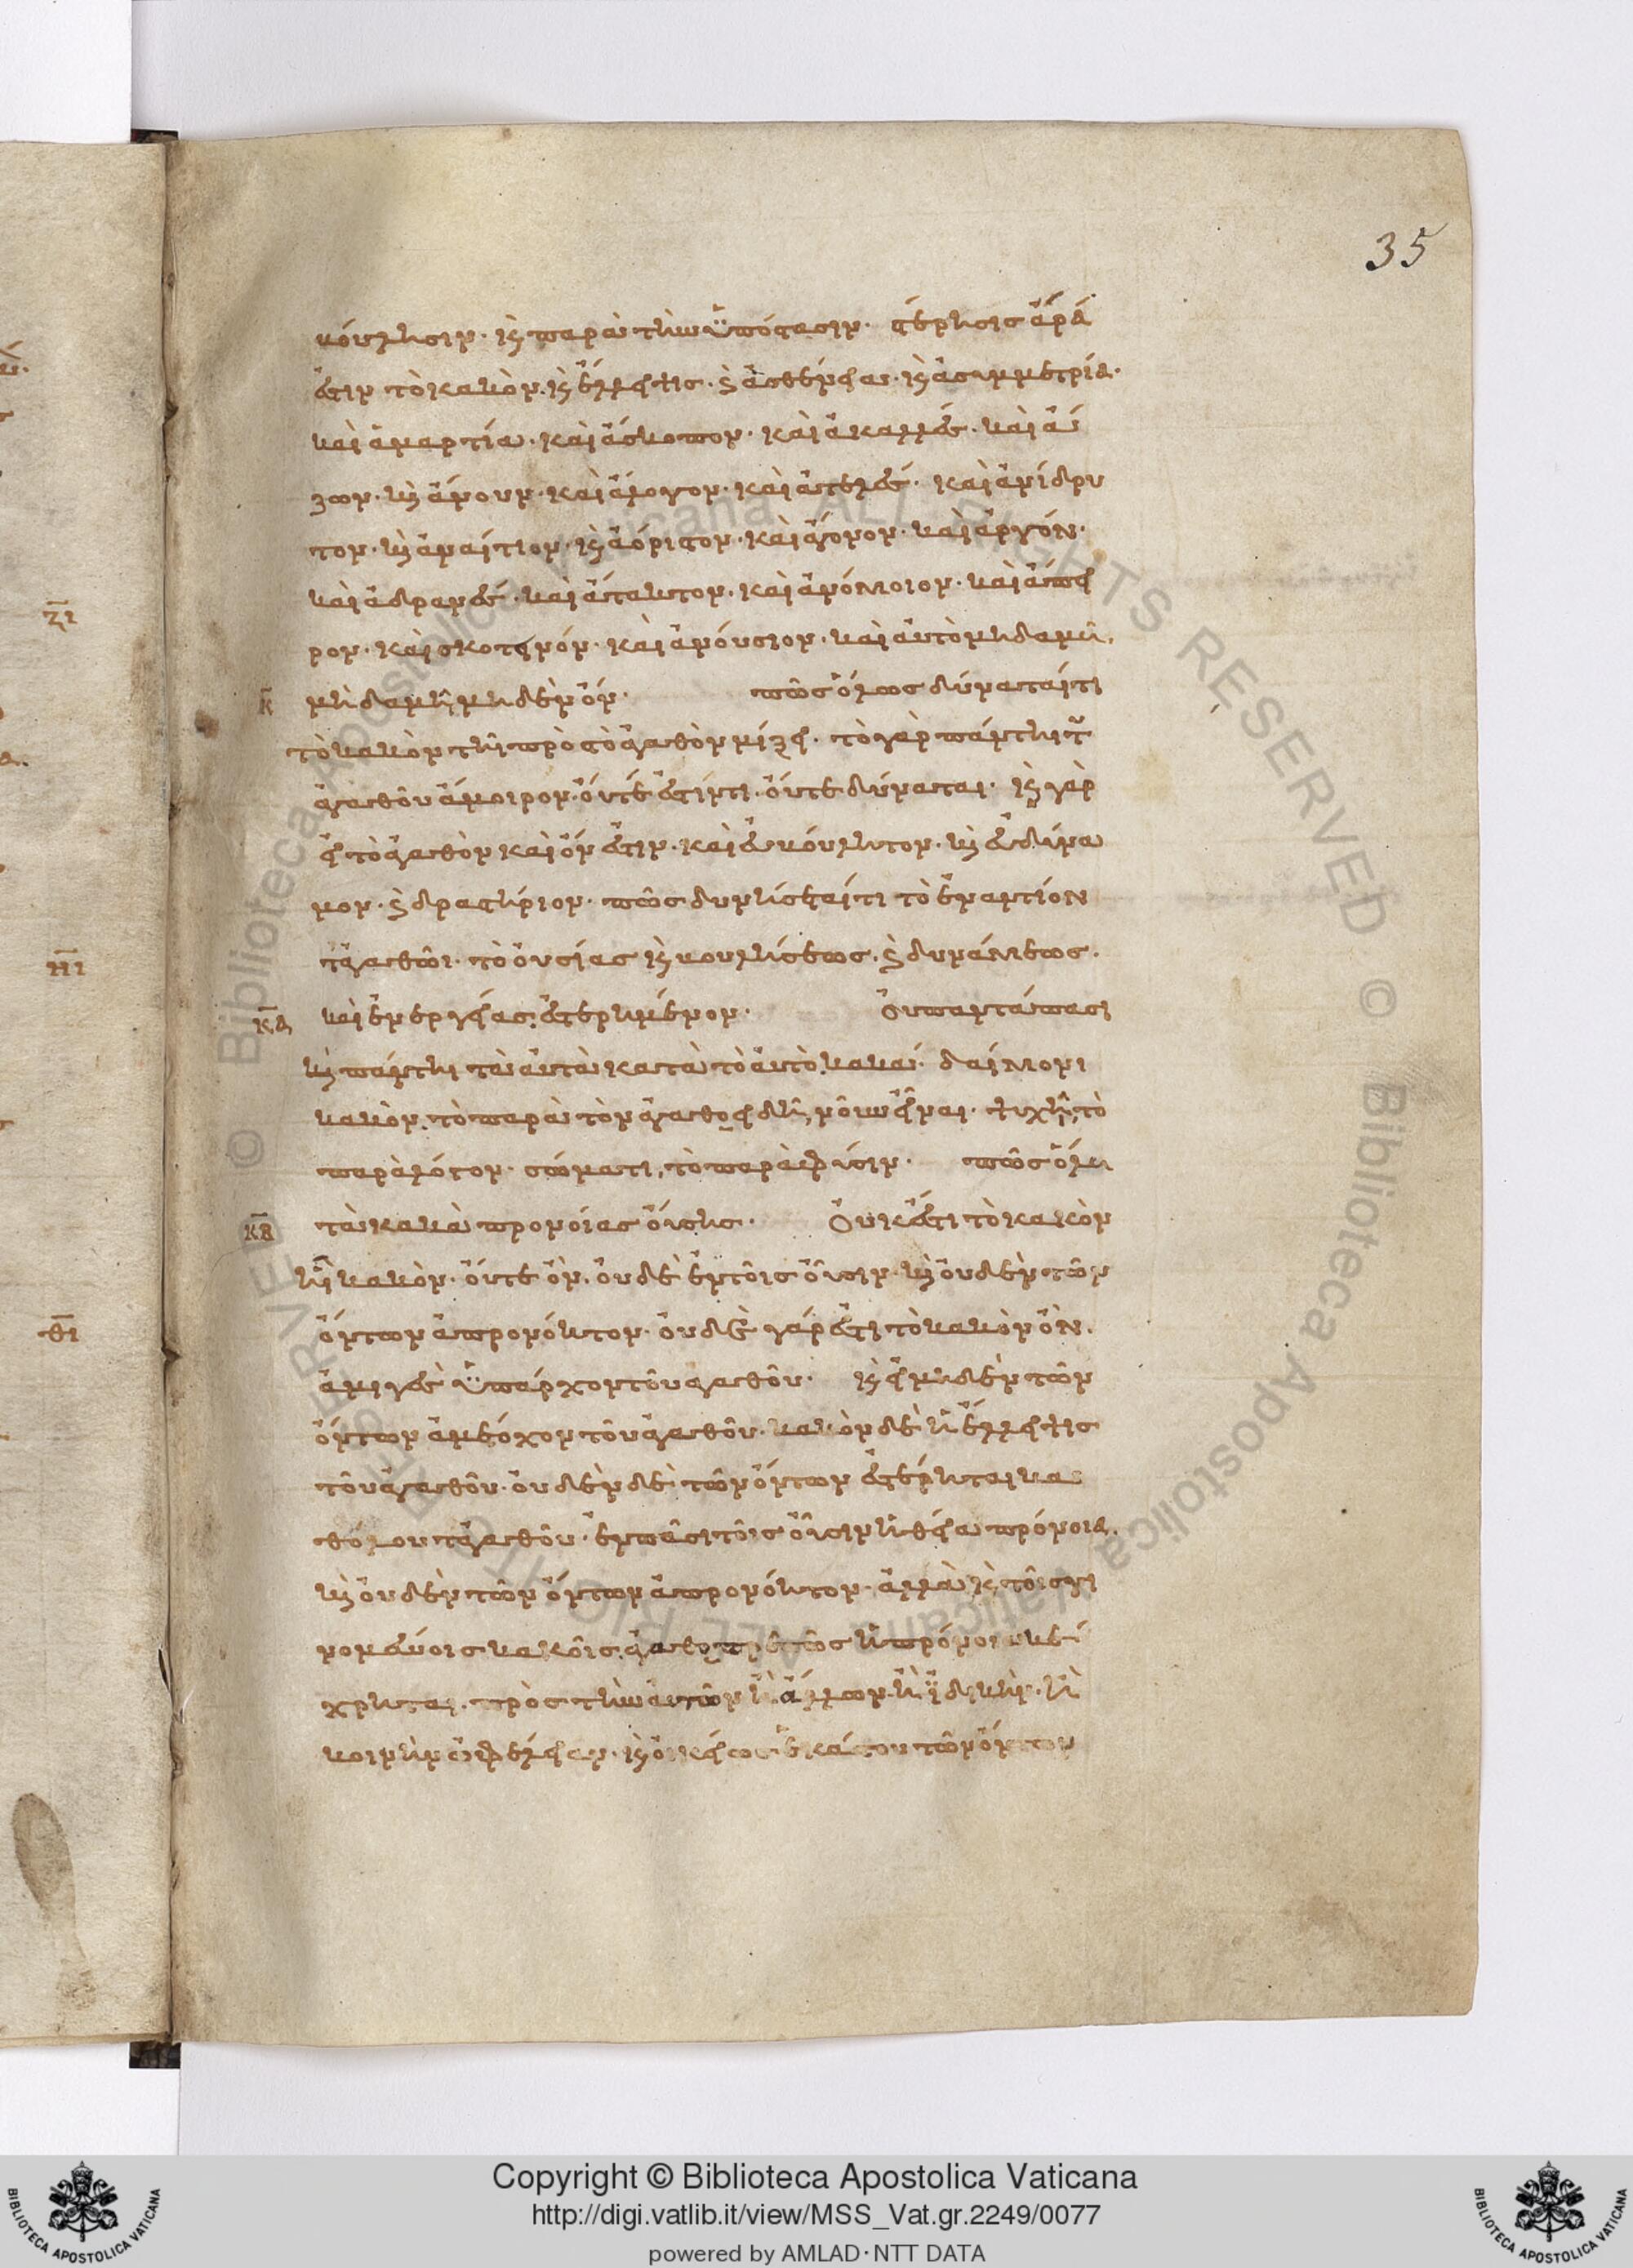 35
κόυλησιν· κ(αὶ) παρὰ τὴν ϋπόστασιν· στέρησις ἄρα
ἐστιν τὸ κακὸν· κ(αὶ) ἔλλειψις· κ(αὶ) ἀσθένεια· κ(αὶ) ἀσυμμετρία·
καὶ ἁμαρτία· καὶ ἄσκοπον· καὶ ἀκαλλὲς· καὶ ἄ
ζων· κ(αὶ) ἄνουν· καὶ ἄλογον· καὶ ἀτελὲς· καὶ ἀνίδρυ
τον· κ(αὶ) ἀναίτιον· κ(αὶ) ἀόριστον· καὶ ἄγονον· καὶ ἀργόν·
καὶ ἀδρανὲς· καὶ ἄτακτον· καὶ ἀνόμοιον· καὶ ἄπει
ρον· καὶ σκοτεινόν· καὶ ἀνόυσιον· καὶ ἀυτὸ μηδαμῆ,
κ̄ μὴδαμῆ μηδὲν ὄν· πῶς ὅλως δύναταί τι
τὸ κακὸν τῆ πρὸς τὸ ἀγαθὸν μίξει· τὸ γὰρ πάντη τοῦ
ἀγαθοῦ ἄμοιρον· ὄυτέ ἐστίν τι· ὄυτε δύναται· κ(αὶ) γὰρ
εἰ τὸ ἀγαθὸν καὶ ὄν ἐστιν· καὶ ἐυκόυλητον· κ(αὶ) ἐνδύνα
μον· κ(αὶ) δραστήριον· πῶς δυνήσεταί τι τὸ ἐναντίον
τἀγαθῶι· τὸ ὀυσίας κ(αὶ) κουλήσεως· κ(αὶ) δυνάμεως·
κ̄ᾱ καὶ ἐνεργείας· ἐστερημένον· Ὀυ παντάπασι
κ(αὶ) πάντη τὰ ἀυτὰ κατὰ τὸ ἀυτὸ κακά· δαίμονι
κακὸν, τὸ παρὰ τὸν ἀγαθοειδῆ, νοῦν εἶναι· ψυχῆ, τὸ
παρὰ λόγον· σώματι, τὸ παρὰ φύσιν· πῶς ὅλω(ς)
κ̄β̄ τὰ κακὰ προνοίας ὄυσης· Ὀυκ ἔστι τὸ κακὸν
ἧ κακὸν· ὄυτε ὂν· ὀυδὲ ἐν τοῖς ὀῦσιν· κ(αὶ) ὀυδὲν τῶν
ὄντων ἀπρονόητον· ὀυδὲ γάρ ἐστι τὸ κακὸν ὂν,
ἀμιγὲς ϋπάρχον τοῦ ἀγαθοῦ· κ(αὶ) εἰ μηδὲν τῶν
ὄντων ἀμέτοχον τοῦ ἀγαθοῦ· κακὸν δὲ ἡ ἔλλειψις
τοῦ ἀγαθοῦ· ὀυδὲν δὲ τῶν ὄντων ἐστέρηται κα
θόλου τἀγαθοῦ· ἐν πᾶσι τοῖς ὀῦσιν ἡ θεία πρόνοια,
κ(αὶ) ὀυδὲν τῶν ὄντων ἀπρονόητον· ἀλλὰ κ(αὶ) τοῖς γι
νομένοις κακοῖς ἀγαθοπρεπῶς ἡ πρόνοια κέ
χρηται· πρὸς τὴν ἀυτῶν ἢ ἄλλων· ἢ ἰδικὴν· ἢ
κοινὴν ὠφέλειαν· κ(αὶ) ὀικείως ἑκάστου τῶν ὄντων
ζ̄ῑ
η̄ῑ
θ̄ῑ
© Biblioteca Apostolica Vaticana ALL RIGHTS RESERVED © Biblioteca Apostolica Vaticana ALL RIGHTS RESERVED
Copyright © Biblioteca Apostolica Vaticana
http://digi.vatlib.it/view/MSS_Vat.gr.2249/0077
powered by AMLAD·NTT DATA
BIBLIOTECA APOSTOLICA VATICANA
BIBLIOTECA APOSTOLICA VATICANA